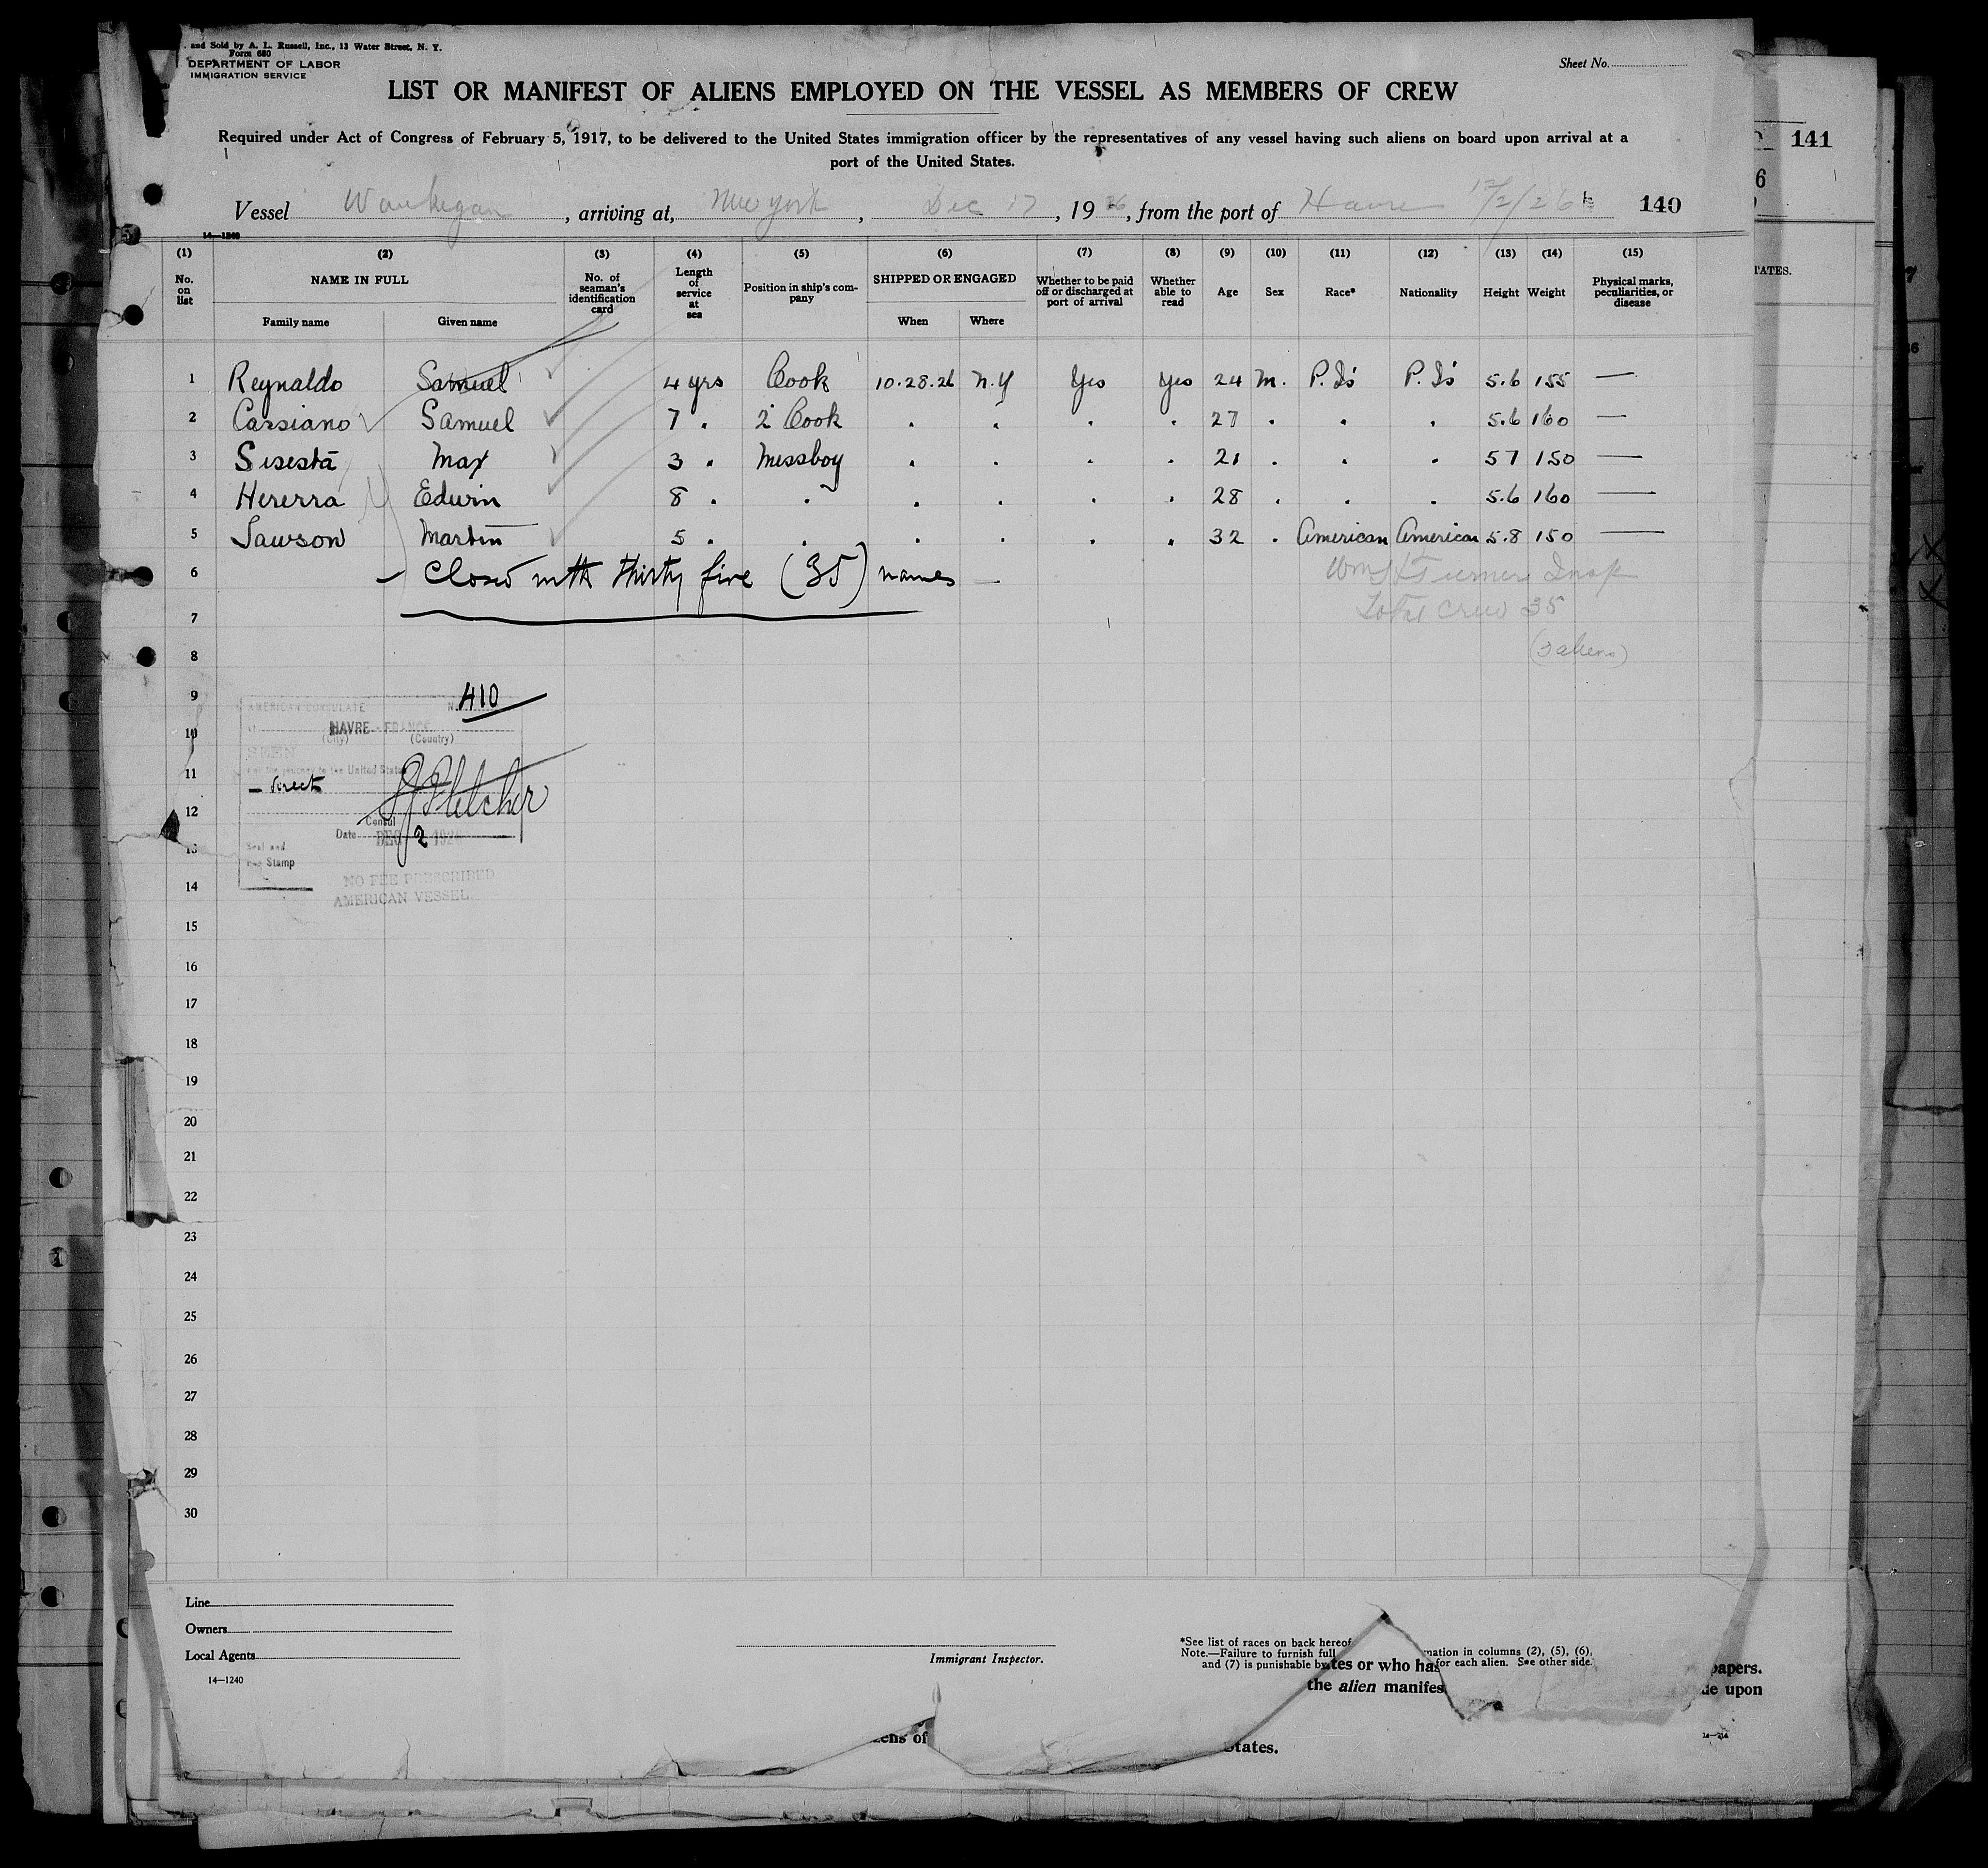 . and Sold by A. L. Russell, Inc., 13 Water Street, N. Y.
Form 680
DEPARTMENT OF LABOR
IMMIGRATION SERVICE
Sheet No.
LIST OR MANIFEST OF ALIENS EMPLOYED ON THE VESSEL AS MEMBERS OF CREW
Required under Act of Congress of February 5, 1917, to be delivered to the United States immigration officer by the representatives of any vessel having such aliens on board upon arrival at a
port of the United States.
Vessel Waukegan, arriving at, New York, Dec 17, 1926, from the port of Havre 12/2/26 140
14—1240
(1) (2) (3) (4) (5) (6) (7) (8) (9) (10) (11) (12) (13) (14) (15)
No. on list NAME IN FULL No. of seaman's identification card Length of service at sea Position in ship's company SHIPPED OR ENGAGED Whether to be paid off or discharged at port of arrival Whether able to read Age Sex Race* Nationality Height Weight Physical marks, peculiarities, or disease
Family name Given name When Where
1 Reynaldo Samuel 4 yrs Cook 10.28.26 N.Y Yes Yes 24 M. P. Is P. Is 5.6 155 —
2 Carsiano Samuel 7 . 2 Cook . . . . 27 . . . 5.6 160 —
3 Sisesta Max 3 . Messboy . . . . 21 . . . 57 150 —
4 Hererra Edwin 8 . . . . . . 28 . . . 5.6 160 —
5 Lawson Martin 5 . . . . . . 32 . American American 5.8 150 —
6 — Closed with thirty five (35) names — Wm H Turner Insp
7 Total crew 35
8 (3 aliens)
9
10
11
12
13
14
15
16
17
18
19
20
21
22
23
24
25
26
27
28
29
30
AMERICAN CONSULATE No. 410
at HAVRE - FRANCE
(City) (Country)
SEEN
For the journey to the United States
— direct
Fletcher
Consul
Date DEC 2 1926
Seal and
Fee Stamp
NO FEE PRESCRIBED
AMERICAN VESSEL
Line
Owners
Local Agents
14—1240
Immigrant Inspector.
*See list of races on back hereof
Note.—Failure to furnish full mation in columns (2), (5), (6),
and (7) is punishable by for each alien. See other side.
tes or who has papers.
the alien manifes e upon
ens of
States.
141
6
TATES.